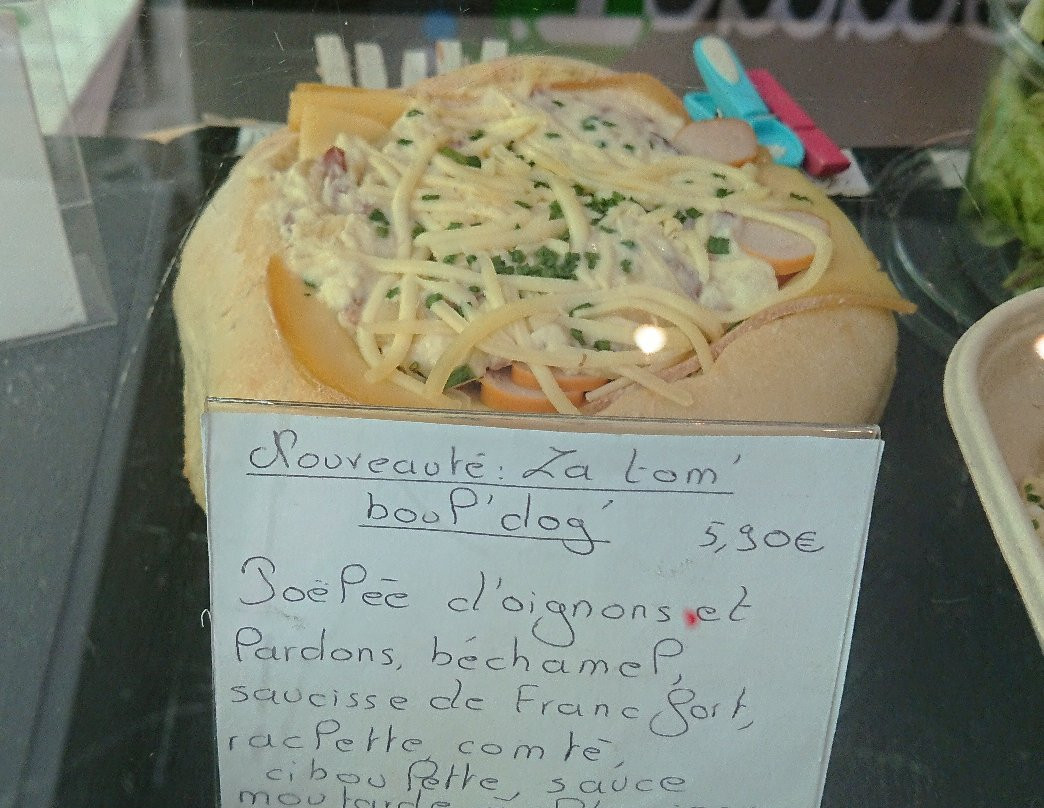 Nouveauté : La tom'
boul'dog'
5,90€
Poëlée d'oignons et
lardons, béchamel,
saucisse de Francfort,
raclette, comté,
ciboulette, sauce
moutarde